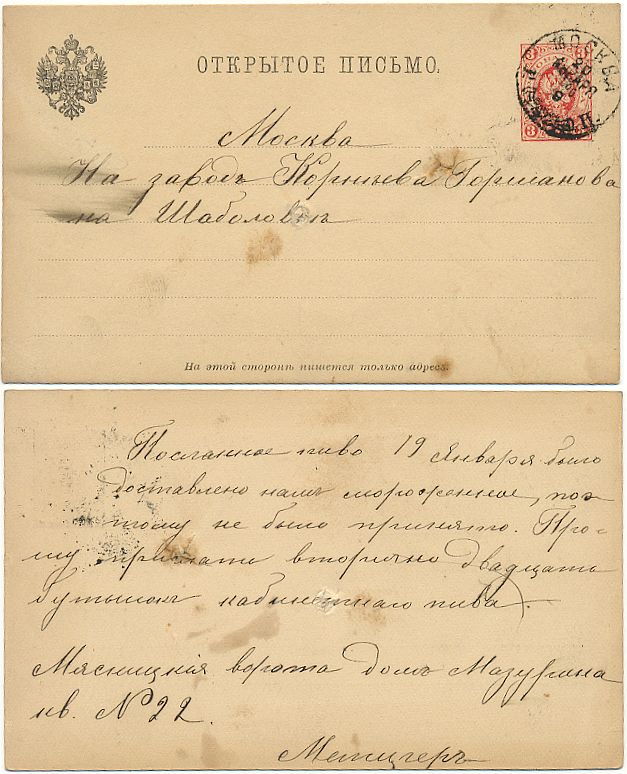 ОТКРЫТОЕ ПИСЬМО.
МОСКВА
3 3
Москва
На заводъ Корнѣева Горшанова
на Шаболовкѣ
На этой сторонѣ пишется только адресъ.
Посланное пиво 19 Января было
доставлено намъ мороженное, поэ
тому не было принято. Про-
шу прислать вторично двадцать
бутылокъ кабинетнаго пива.
Мясницкія ворота домъ Мазурина
кв. № 22.
Метцгеръ